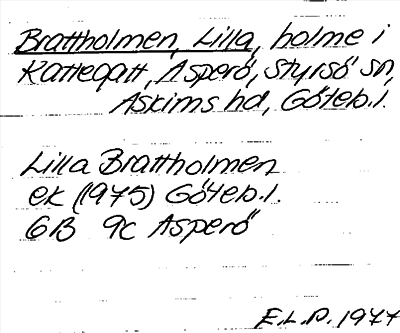 Brattholmen, Lilla, holme i
Kattegatt, Asperö, Styrsö sn,
Askims hd, Göteb.l.
Lilla Brattholmen
ek (1975) Göteb.l.
6B 9c Asperö
E.L.P. 1977